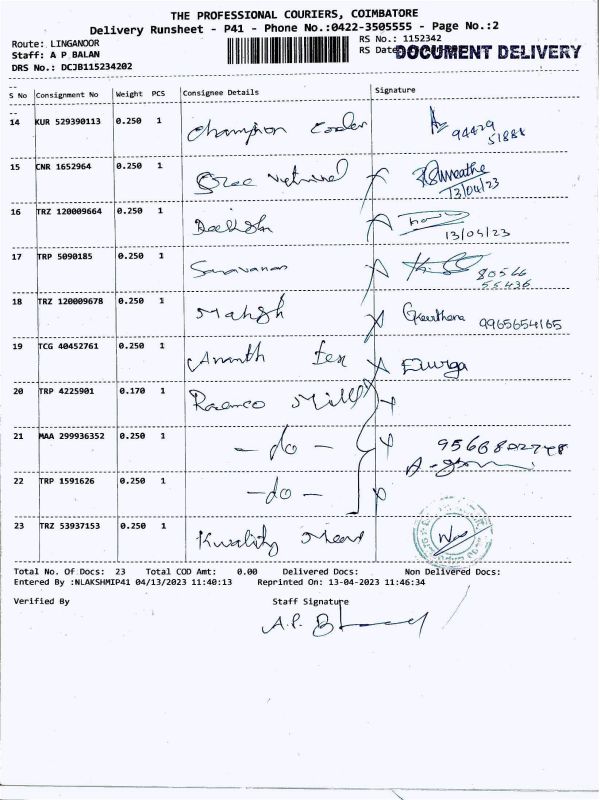 THE PROFESSIONAL COURIERS, COIMBATORE
Delivery Runsheet - P41 - Phone No.:0422-3505555 - Page No.:2
Route: LINGANOOR
Staff: A P BALAN
DRS No.: DCJB115234202
RS No.: 1152342
RS Date
DOCUMENT DELIVERY
S No Consignment No Weight PCS Consignee Details Signature
14 KUR 529390113 0.250 1 Champion Cooler 94429 51888
15 CNR 1652964 0.250 1 13/04/23
16 TRZ 120009664 0.250 1 13/04/23
17 TRP 5090185 0.250 1 Saravanan 80546 55436
18 TRZ 120009678 0.250 1 Mahesh Keerthana 9965654165
19 TCG 40452761 0.250 1 Ananth Tex Durga
20 TRP 4225901 0.170 1 Mill
21 MAA 299936352 0.250 1 - do -
22 TRP 1591626 0.250 1 - do -
23 TRZ 53937153 0.250 1 Kwality
Total No. Of Docs: 23 Total COD Amt: 0.00 Delivered Docs: Non Delivered Docs:
Entered By :NLAKSHMIP41 04/13/2023 11:40:13 Reprinted On: 13-04-2023 11:46:34
Verified By Staff Signature
A.P. B